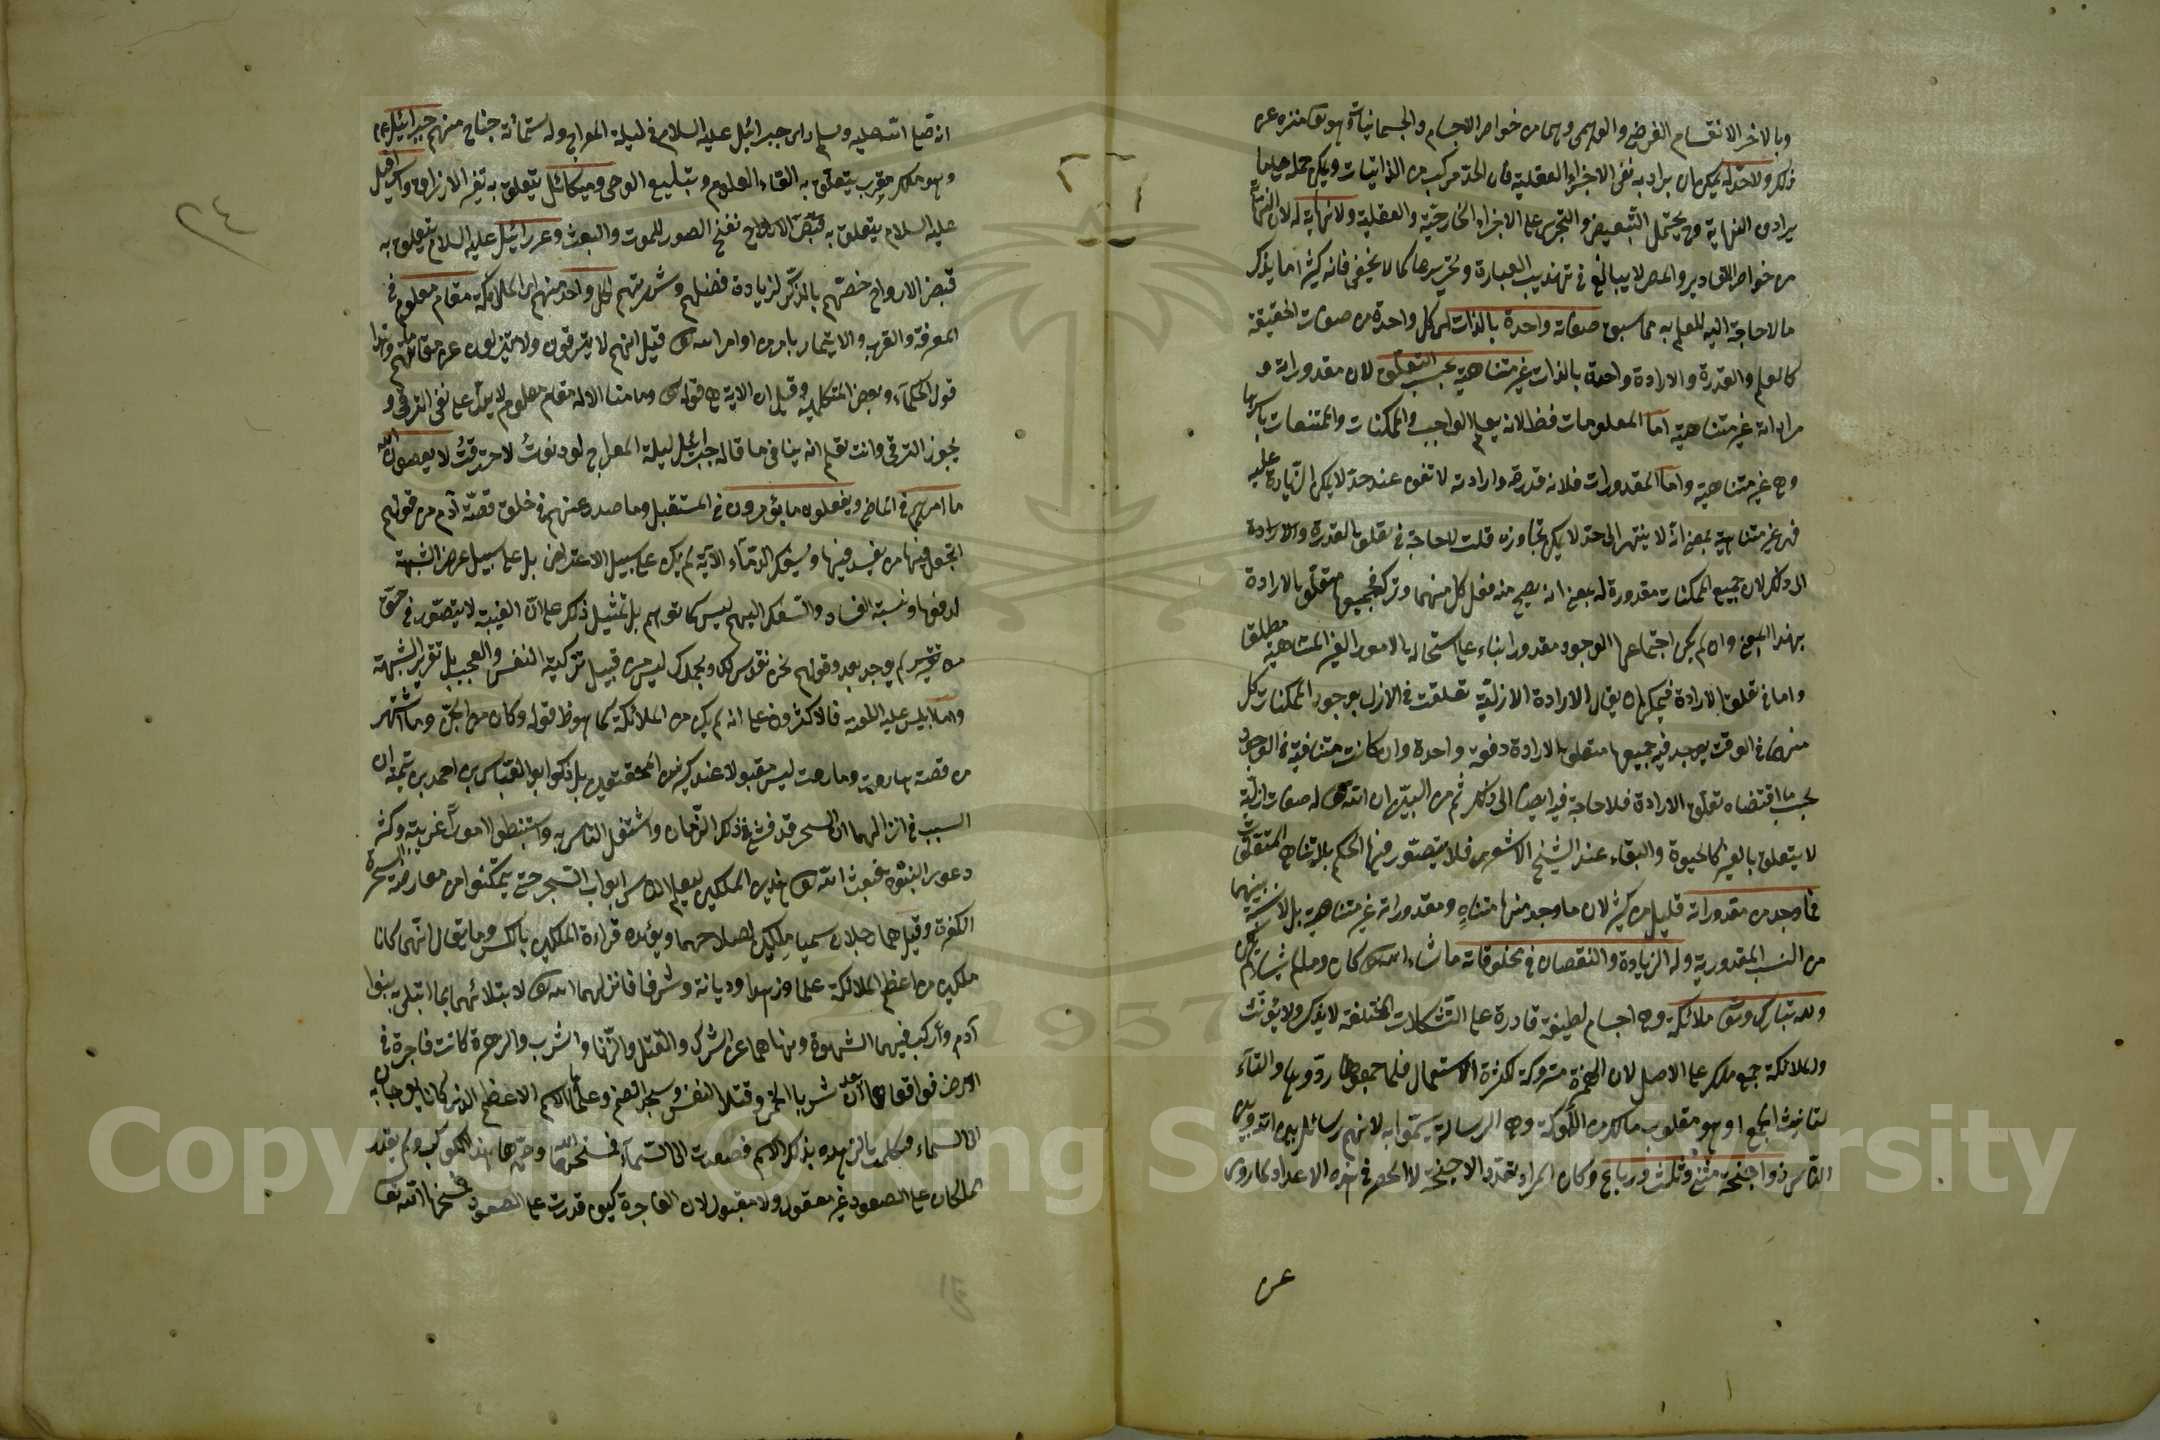 وبالاخر الانقسام الفرضي والوهمي وهما من خواص الاجسام والجسمانيات هو تعالى منزه عن
ذلك ولا حد له يمكن ان يراد به نفي الاجزاء العقلية فان الحد مركب من الذاتيات ويمكن حمله على ما
يرادف النهاية وح يحتمل التبعيض والتجزي على الاجزاء الخارجية والعقلية ولا نهاية له لان النهايات
من خواص المقادير والمص لا يبالغ في تهذيب العبارة وتحريرها كما لا يخفى فانه كثيرا ما يذكر
ما لا حاجة اليه للعلم به مما سبق صفاته واحدة بالذات اي كل واحدة من صفات الحقيقة
كالعلم والقدرة والارادة واحدة بالذات غير متناهية بحسب التعلق لان مقدوراته و
مراداته غير متناهية اما المعلومات فظ لانه يعلم الواجب والممكنات والممتنعات باسرها
وهي غير متناهية واما المقدورات فلانه قدرته وارادته لا تقف عند حد لا يمكن الزيادة عليه
فهي غير متناهية بمعنى انه لا ينتهي الى حد لا يمكن تجاوزه قلت لا حاجة في تعلق القدرة والارادة
الى ذلك لان جميع الممكنات مقدورة له بمعنى انه يصح منه فعل كل منهما وتركه فجميعها متعلق بالارادة
بهذا المعنى وان لم يكن اجتماعها الوجود مقدورا بناء على استحالة الامور الغير المتناهية مطلقا
واما في تعلق الارادة فيمكن ان يقال الارادة الازلية تعلقت في الازل بوجود الممكنات كل
منها في الوقت يوجد فيه جميعها متعلق الارادة دفعة واحدة وان كانت متنافية في الوجود
بحسب ما اقتضاه تعلق الارادة فلا حاجة فيه ايضا الى ذلك ثم من البين ان الله تعالى له صفات ازلية
لا يتعلق بالغير كالحيوة والبقاء عند الشيخ الاشعري فلا يتصور فيها الحكم بلا تناهي المتعلقات
فما وجد من مقدوراته قليل من كثير لان ما وجد منها متناه ومقدوراته غير متناهية بل لا نسبة بينهما
من النسب المقدورية وله الزيادة والنقصان في مخلوقاته ما شاء الله كان وما لم يشأ لم يكن
ولله تبارك وتعالى ملائكة وهي اجسام لطيفة قادرة على التشكلات المختلفة لا يذكر ولا يؤنث
والملائكة جمع ملك على الاصل لان الهمزة متروكة لكثرة الاستعمال فلما جمعوها ردوها والتاء
لتانيث الجمع او هو مقلوب مالك من الالوكة وهي الرسالة سموا به لانهم رسائل بين الله وبين
الناس ذو اجنحة مثنى وثلث ورباع وكان المراد تعدد الاجنحة لا الحصر في هذه الاعداد لما روي
عن
٢٤
انه صلى الله عليه وسلم راى جبرائيل عليه السلام في ليلة المعراج وله ستمائة جناح منهم جبرائيل عم
وهو ملك مقرب يتعلق به القاء العلوم وتبليغ الوحي وميكائيل يتعلق به تعين الارزاق واسرافيل
عليه السلام يتعلق به نفخ الصور للموت والبعث وعزرائيل عليه السلام يتعلق به
قبض الارواح خصهم بالذكر لزيادة فضلهم وشهرتهم لكل واحد منهم اي الملائكة مقام معلوم في
المعرفة والقرب والايتمار بامر من اوامر الله تعالى قيل انهم لا يترقون ولا يتنزلون عن مقامهم وهذا
قول الحكماء وبعض المتكلمين وقيل ان الاية هي قوله تعالى وما منا الا له مقام معلوم لا يدل على نفي الترقي و
يجوز الترقي وانت تعلم انه ينافي ما قاله جبرائيل ليلة المعراج لو دنوت لاحترقت لا يعصون الله
ما امرهم في الماضي ويفعلون ما يؤمرون في المستقبل وما صدر عنهم في خلق قصة آدم من قولهم
اتجعل فيها من يفسد فيها ويسفك الدماء الآية لم يكن على سبيل الاعتراض بل على سبيل عرض الشبهة
لدفعها ونسبة الفساد والسفك اليهم ليس كما توهم بل تمثيل ذلك على ان الغيبة لا يتصور في حق
من لم يوجد بعد وقولهم نحن نقدس لك ونسبح بحمدك ليس من قبيل تزكية النفس والعجب بل تقرير الشبهة
واما ابليس عليه اللعنة فالاكثرون على انه لم يكن من الملائكة كما هو ظ قوله وكان من الجن وما اشتهر
من قصة هاروت وماروت ليس مقبولا عند كثير من المحققين بل ذكر ابو العباس بن احمد بن تيمية ان
السبب في انزالهما ان السحر قد فشى في ذلك الزمان واشتغل الناس به واستنبطوا امورا غريبة وكثر
دعوى النبوة فبعث الله تعالى هذين الملكين ليعلم الناس ابواب السحر حتى يتمكنوا من معارضة السحرة
الكفرة وقيل هما رجلان سميا ملكين لصلاحهما ويؤيده قراءة الملكين بالكسر وما يقال انهما كانا
ملكين من اعظم الملائكة علما وزهدا وديانة وشرفا فانزلهما الله تعالى لابتلائهما بما ابتلي به بنوا
آدم وأركب فيهما الشهوة ونهاهما عن الشرك والقتل والزنا والشرب والزهرة كانت فاجرة في
الارض فواقعاها بعد ان شربا الخمر وقتلا النفس وسجدا لصنم وعلماها الاسم الاعظم الذي كانا يعرجان به
الى السماء فتكلمت الزهرة بذلك الاسم فصعدت الى السماء فمسخها الله وصيرها هذا الكوكب ولم يقدر
الملكان على الصعود غير معقول ولا مقبول لان الفاجرة كيف قدرت على الصعود فمسخها الله تعالى
Copyright © King Saud University
1957